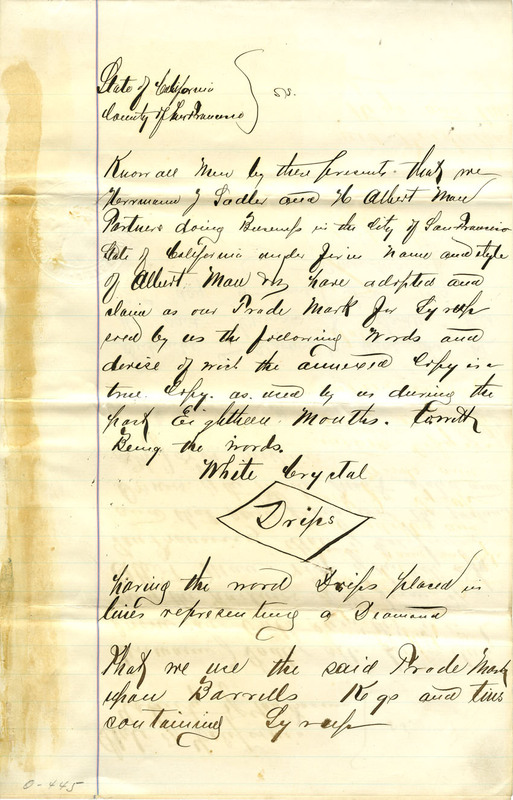 State of California
County of San Francisco
SS.
Know all Men by these presents. that we
Herrmann J Sadler and H Albert Mau
Partners doing Business in the City of San Francisco
State of California under firm name and style
of Albert Mau & Co have adopted and
claim as our Trade Mark for Syrup
used by us the following Words and
devise of wich the annexed Copy is a
true Copy. as used by us during the
past Eighteen Months.
Being the words.
White Crystal
Drips
having the word Drips placed in
lines representing a Diamond
That we use the said Trade Mark
upon Barrells Kegs and tins
containing Syrup
0-445